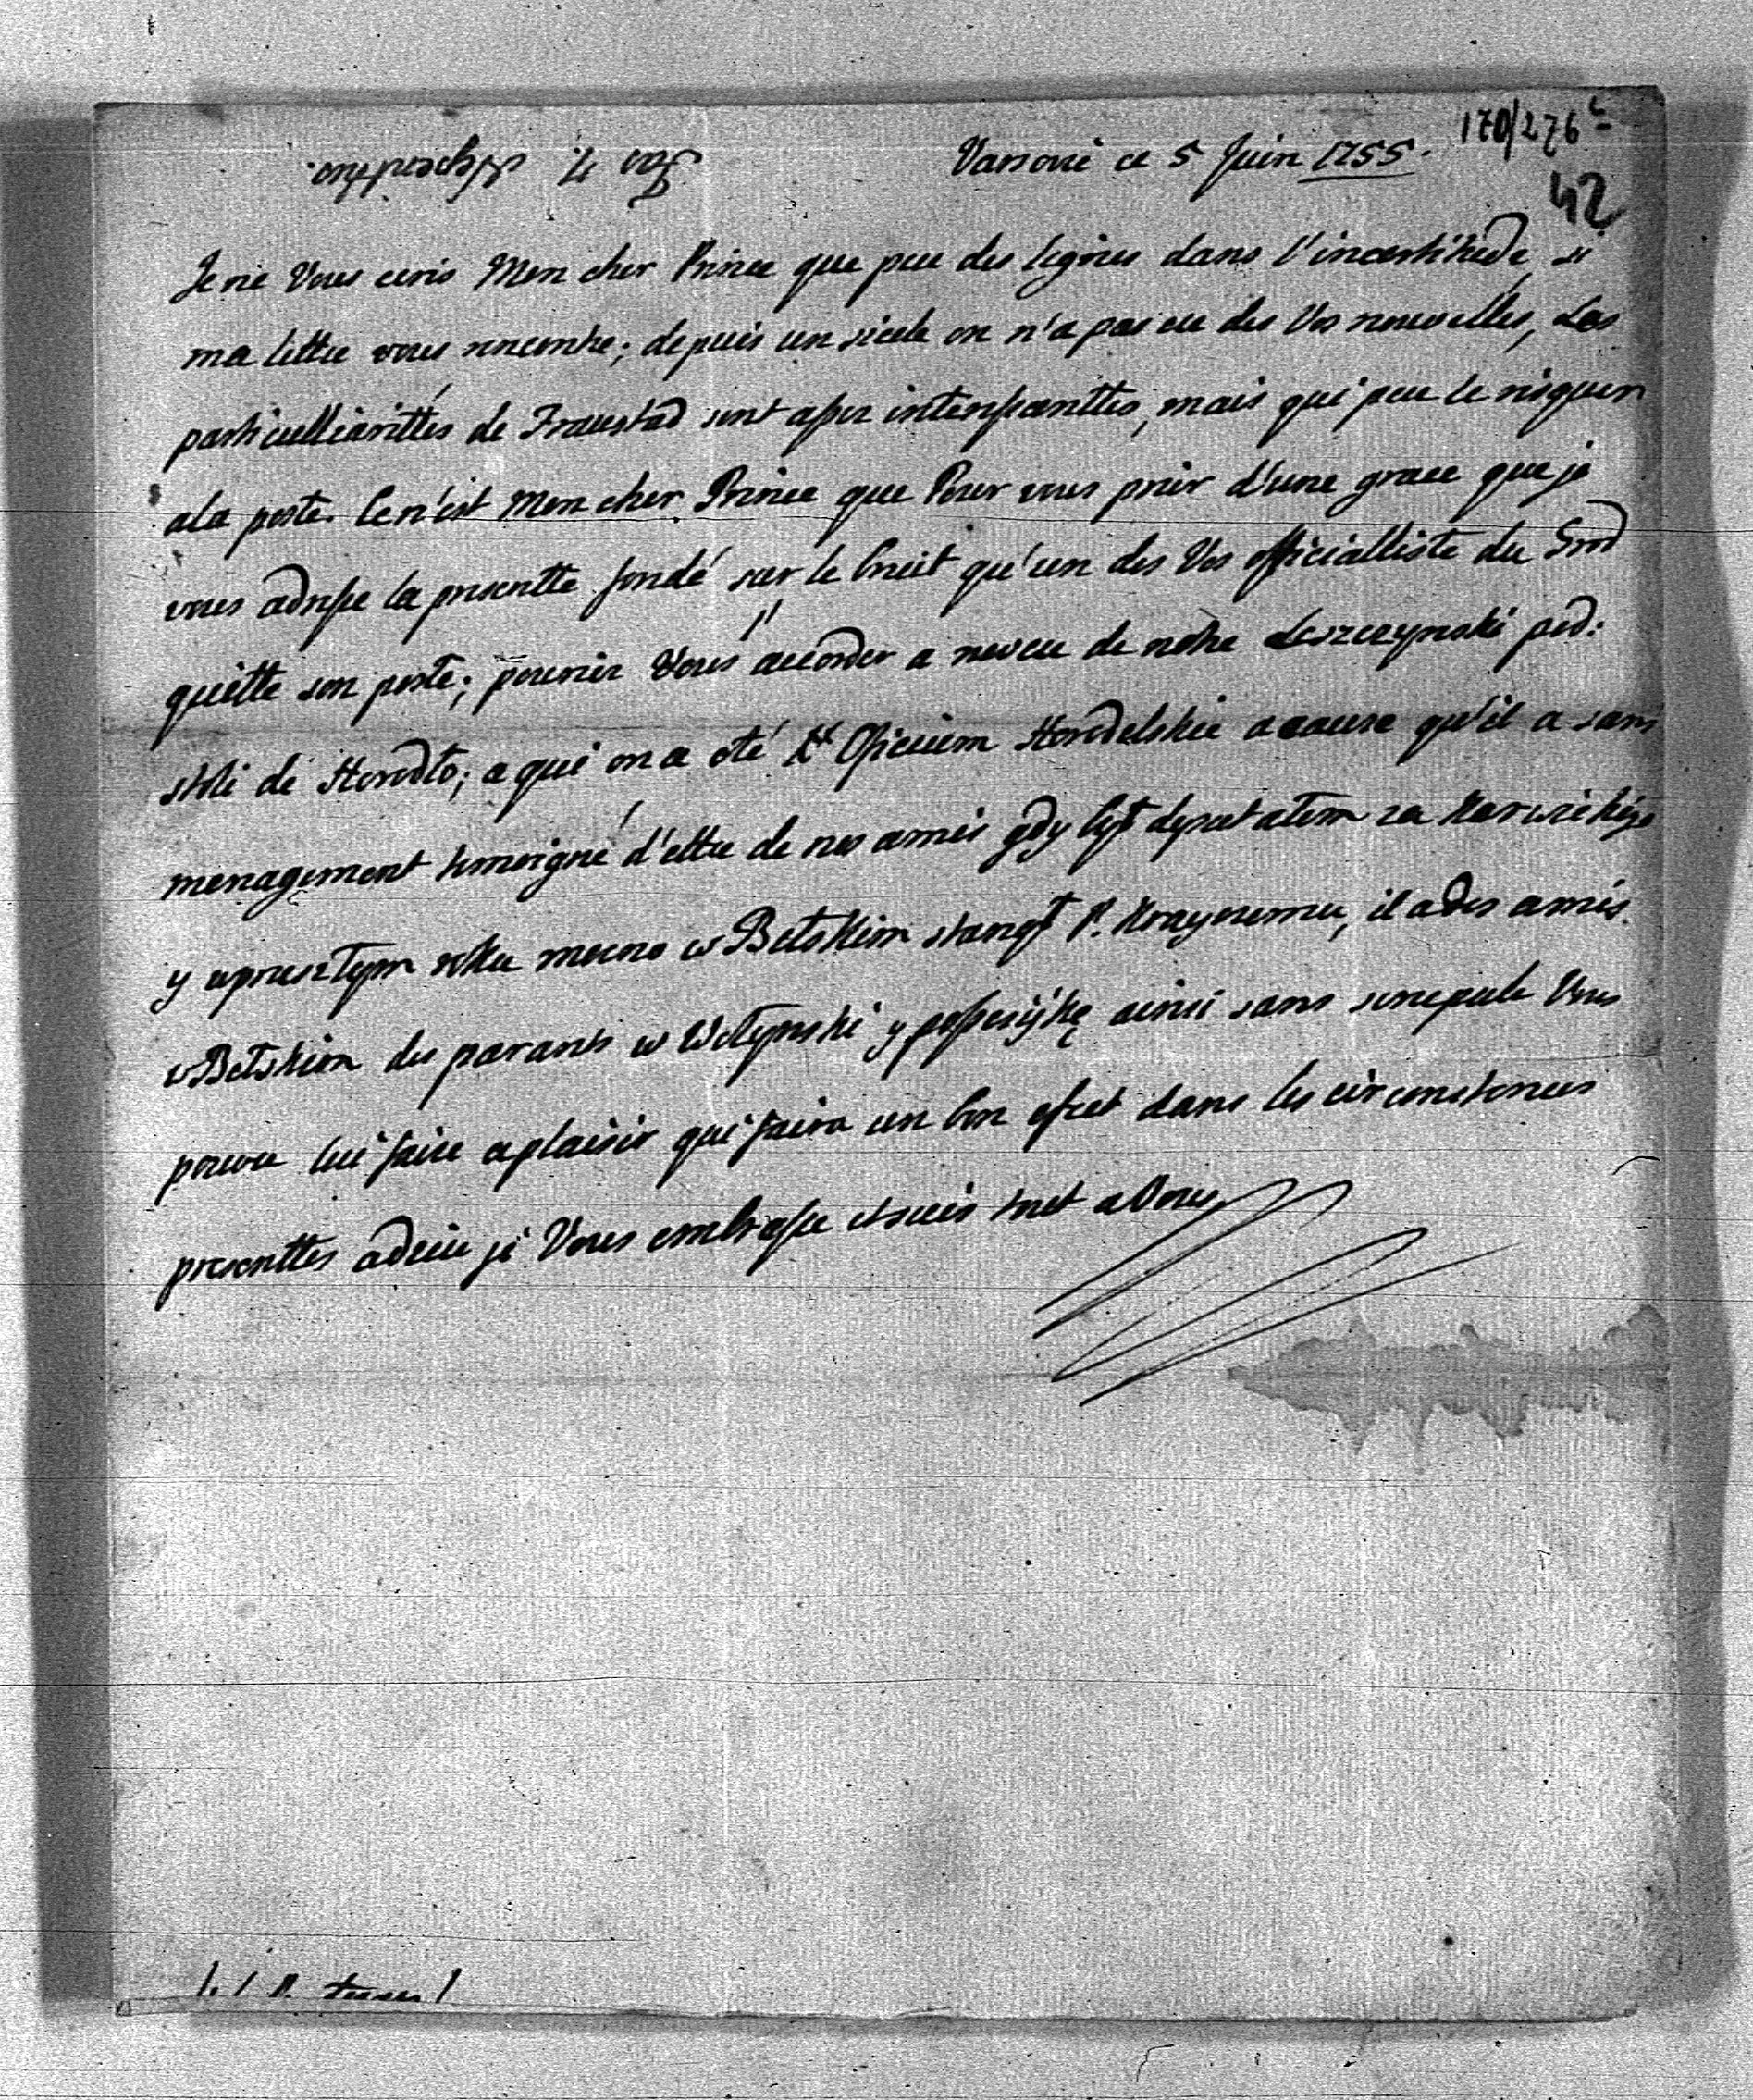 170/276
42
Varsovie ce 5 Juin 1755.
Je ne Vous ecris Mon cher Prince que peu des lignes dans l'incertitude, si
ma lettre vous rencontre; depuis un siecle on n'a pas eu des Vos nouvelles, Les
particulliarittés de Fraustad sont assez interssanttes, mais qui peu le risquer
a la poste. Ce n'est Mon cher Prince que Pour vous prier d'une grace que je
vous adresse la presentte fondé sur le bruit qu'un des Vos officialliste du Grod
quitte son poste; pouriez Vous l'accorder a neveu de notre Leszczynski pod:
stoli de Horodło; a qui on a oté Officium Horodelskie a cause qu'il a sans
menagement temoigné d'ettre de nos amis gdy był deputatem za Karwickiego
y w przeszłym roku mocno w Bełskim stanął P. Krayczemu, il a des amis
w Bełskim des parants w Wołynski y possesiykę ainsi sans scrupule Vous
pouvee lui faire ce plaisir qui faira un bon efect dans les circonstances
presenttes adieu je Vous embrasse et suis tout a Vous